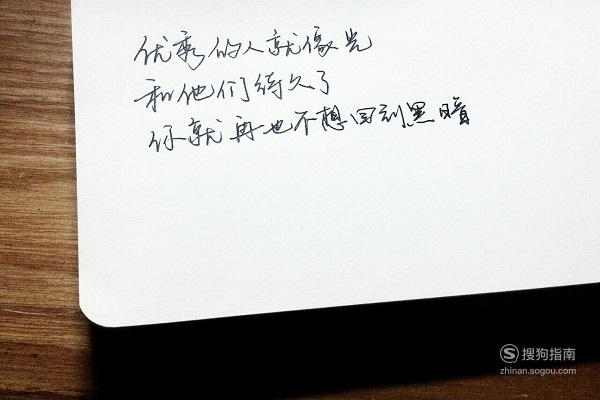 优秀的人就像光
和他们待久了
你就再也不想回到黑暗
S 搜狗指南
zhinan.sogou.com